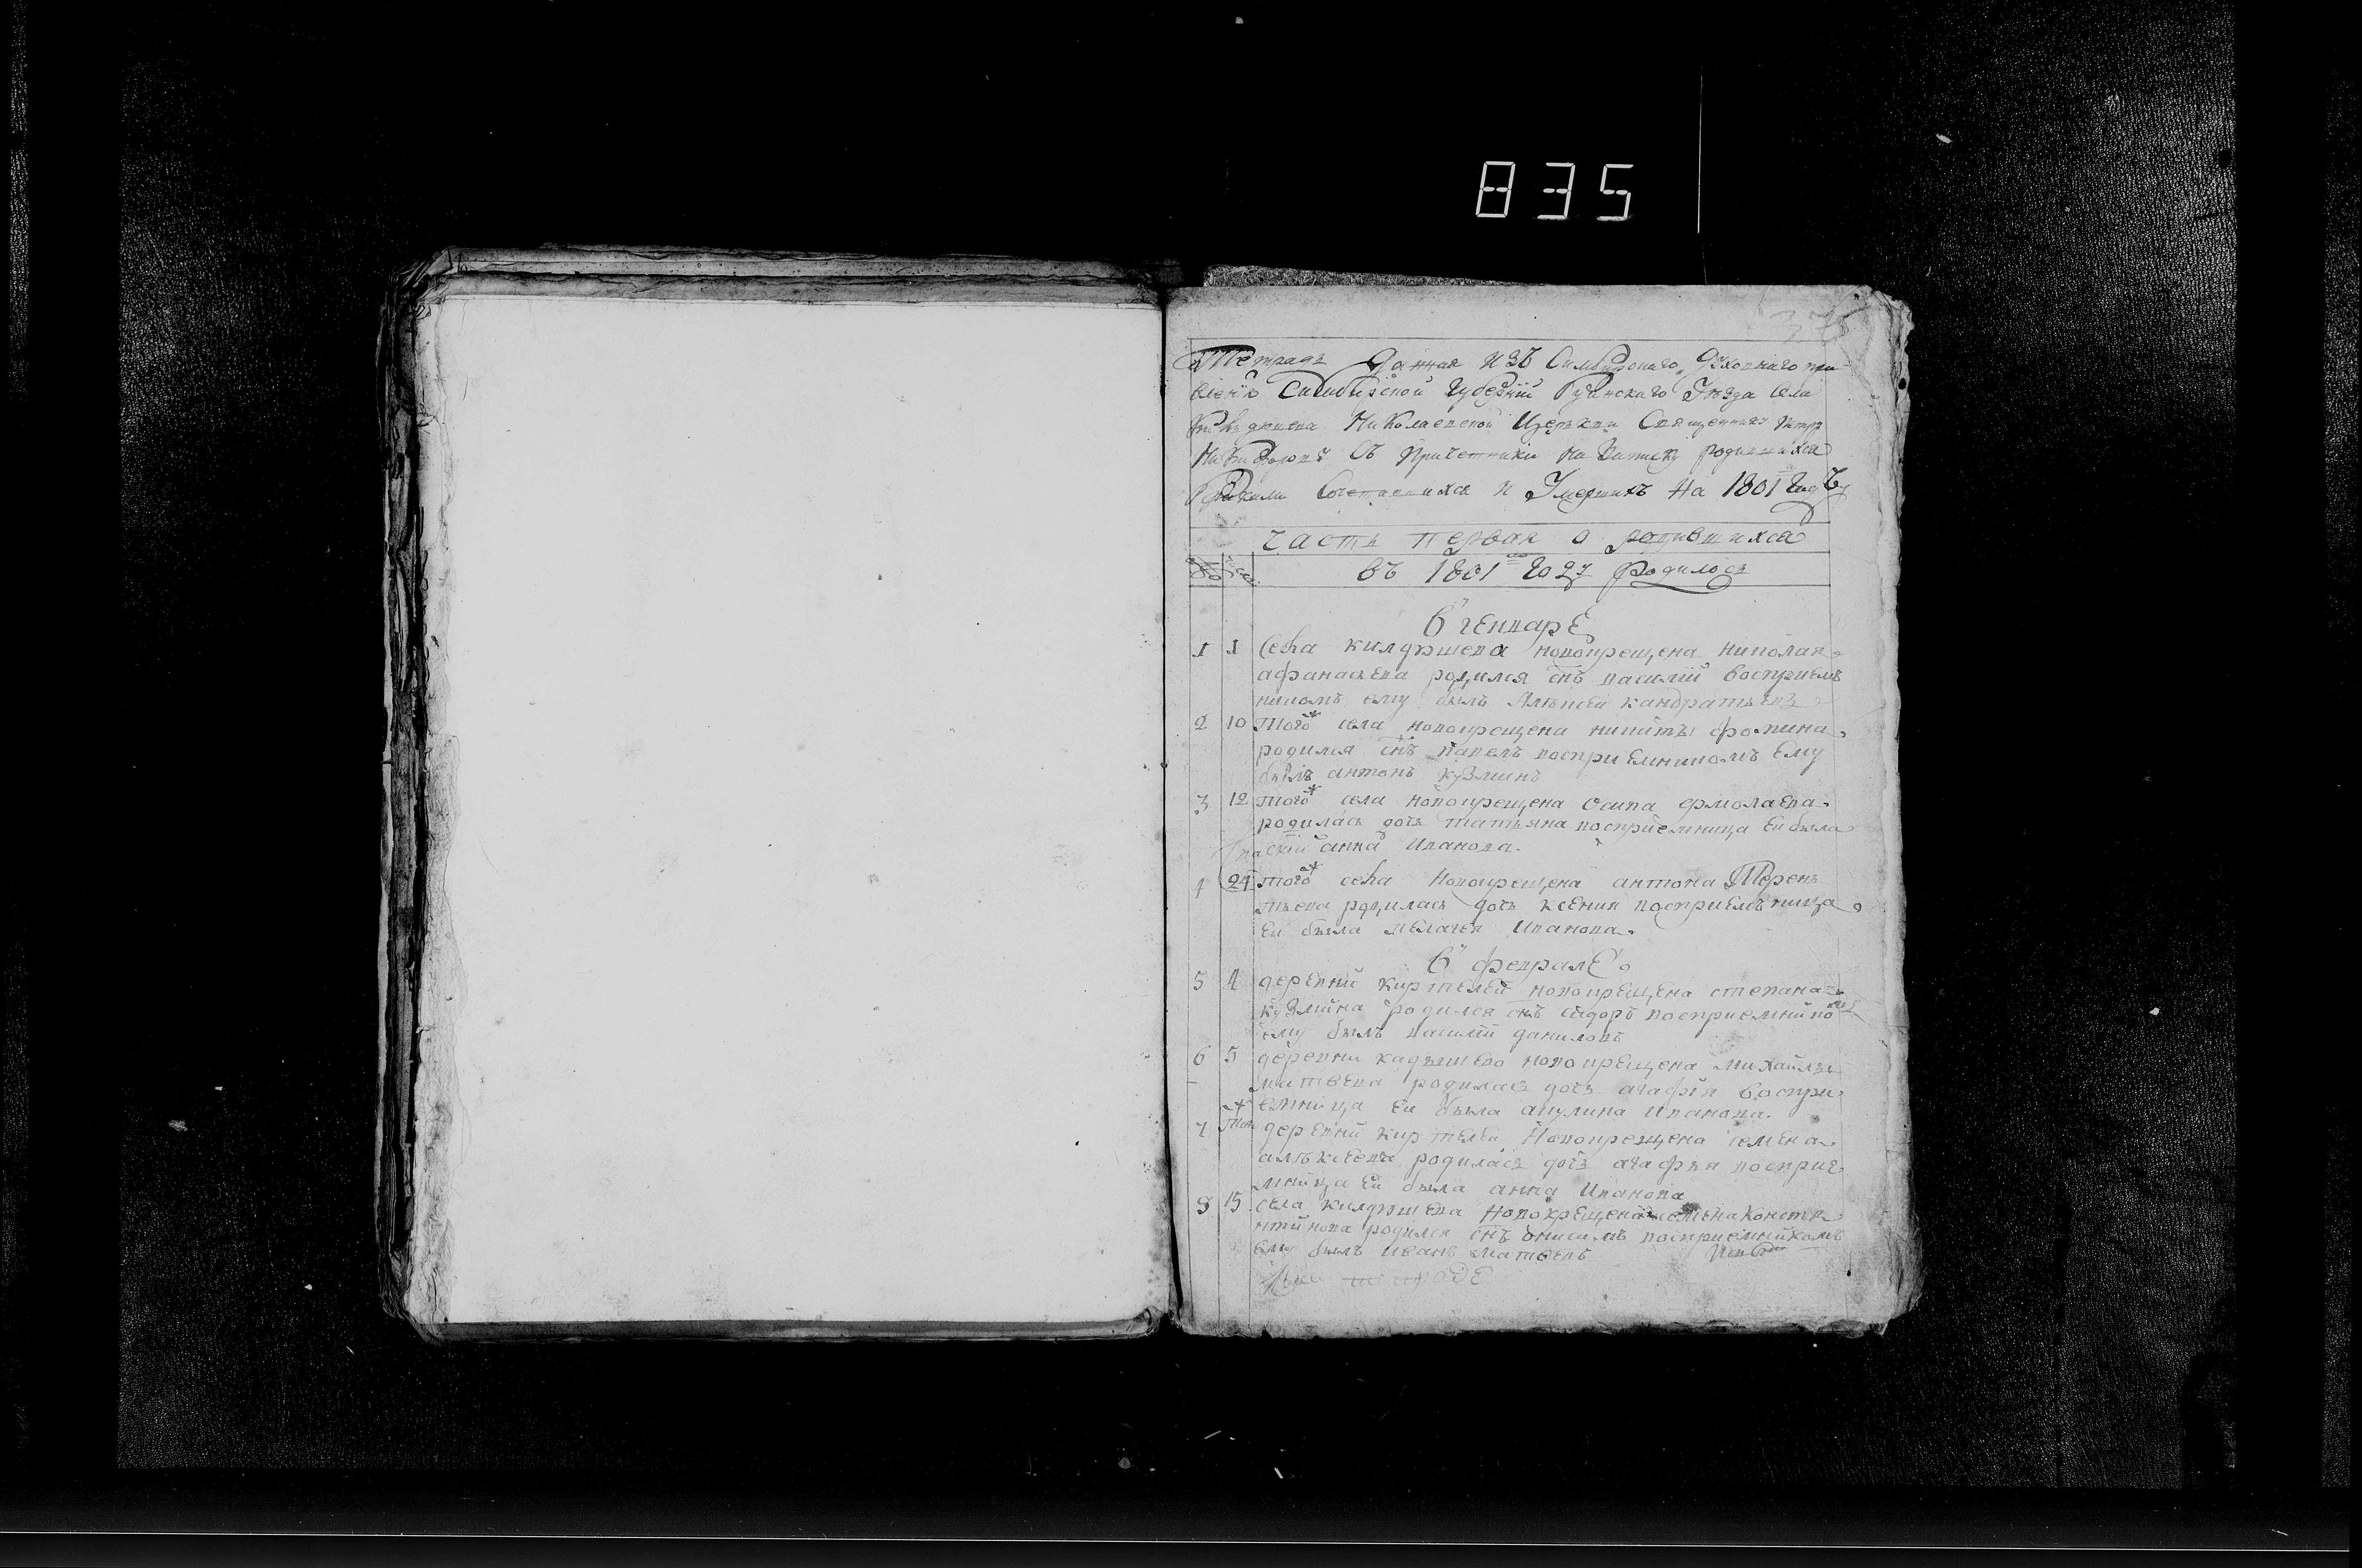 835
Тетрадь Данная изъ Симбирскаго Духовнаго прав
вленія Симбирской Губерніи Буинскаго Уезда Села
Килдюшева Николаевской Церкви Священнику Петру
Никифорову Съ Причетники на Записку родившихся
Бракомъ Сочетавшихся и Умершихъ На 1801 Годъ
часть первая о родившихся
въ 1801 году Родилось
в генваре
1 1 Села килдюшева новокрещена николая
афанасьева родился снъ василий восприем
никомъ ему былъ Алексей кандратьевъ
2 10 Того ж села новокрещена никиты фомина
родился снъ павелъ восприемникомъ ему
былъ антонъ кузминъ
3 12 того ж села новокрещена осипа ермолаева
родилась дочь татьяна восприемница еи была
анна Иванова.
4 24 того ж села Новокрещена антона Терень
тьева родилась дочь ксения восприемъница
еи была Иванова.
в феврале
5 4 деревни киртелей новокрещена степана
кузмина родился снъ сидоръ восприемнико
мъ
ему былъ василий даниловъ
6 5 деревни кадышево новокрещена михайлы
матвева родилась дочь агафия воспри
емница еи была акулина иванова.
7 Тож деревни киртелей Новокрещена семена
алексеева родилась дочь агафья восприе
мница еи была анна Иванова
8 15 села килдюшева Новокрещена семена Конста
нтинова родился снъ анисимъ восприемникомъ
ему былъ иванъ матвевъ
тетраде